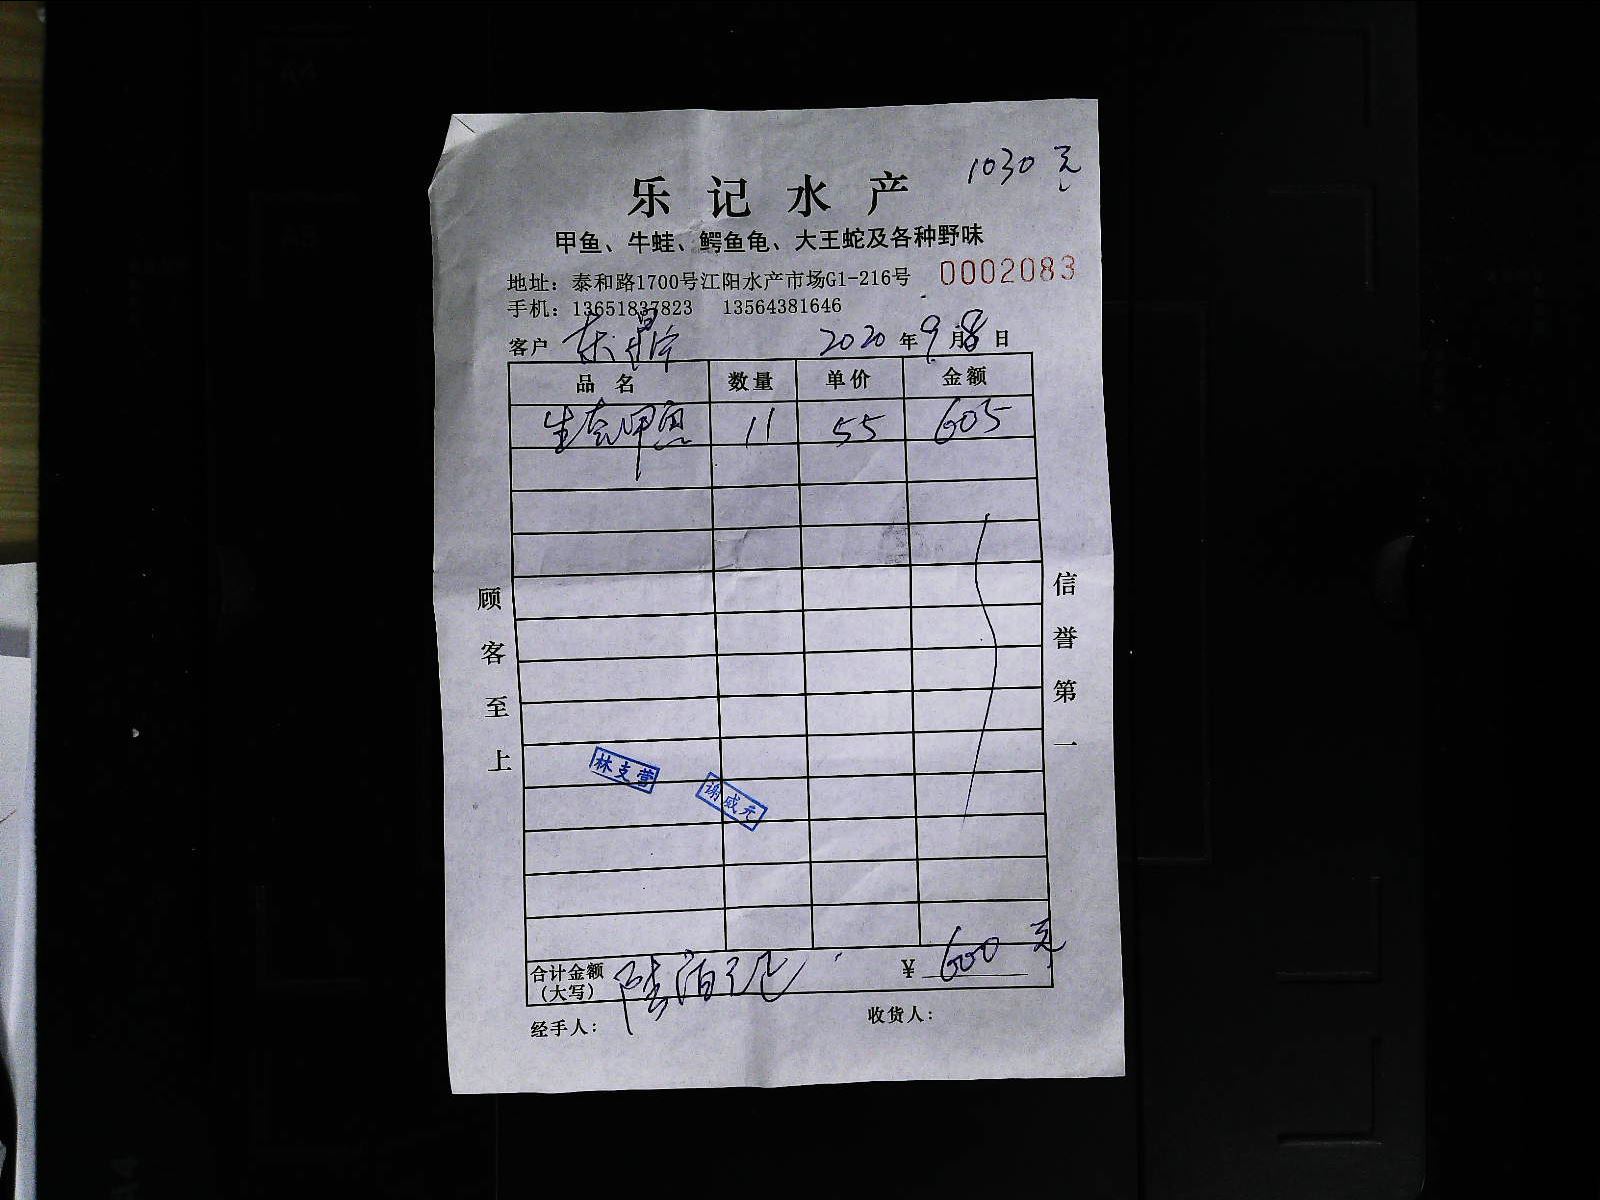 1030元
乐记水产
甲鱼、牛蛙、鳄鱼龟、大王蛇及各种野味
地址：泰和路1700号江阳水产市场G1-216号
0002083
手机：13651837823 13564381646
客户 2020年9月8日
品名 数量 单价 金额
生态甲鱼 11 55 605
顾客至上
信誉第一
林支营
谢成元
合计金额 ¥600元
（大写） 陆佰
经手人： 收货人：